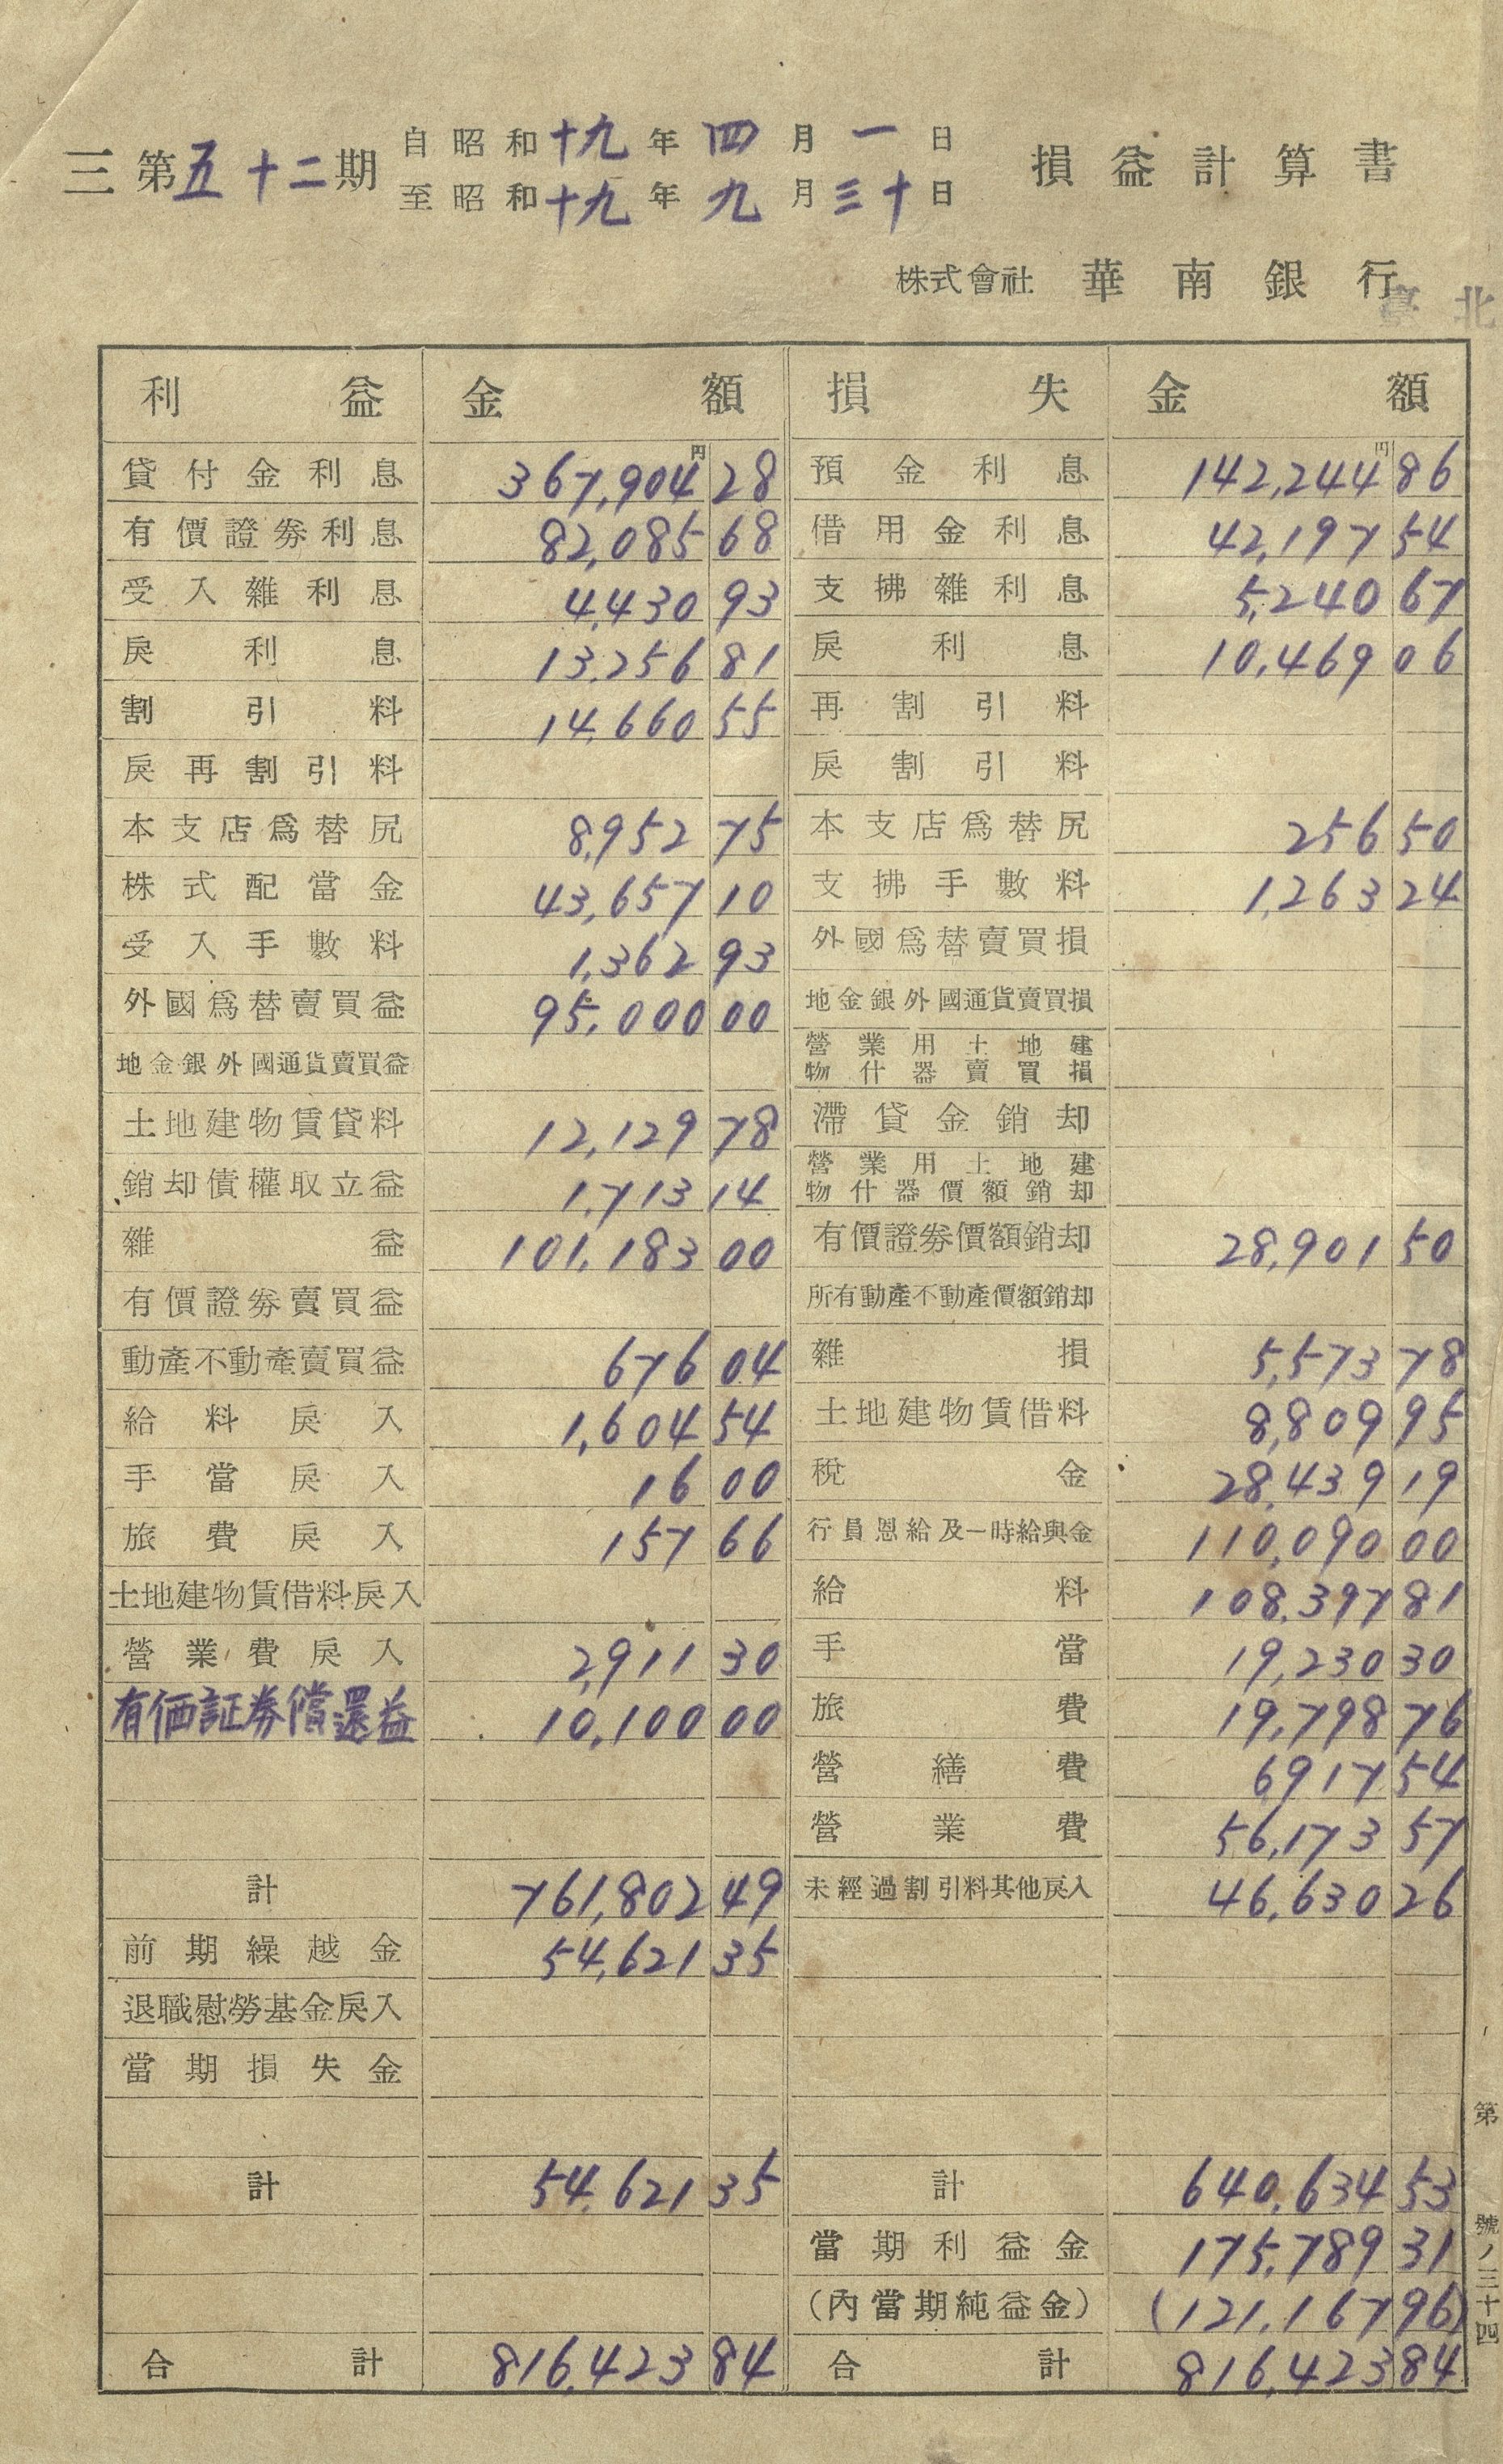 三 第五十二期 自昭和十九年四月一日 損益計算書
至昭和十九年九月三十日
株式會社 華南銀行
臺北
利益 金額 損失 金額
貸付金利息 367,904円28 預金利息 142,244円86
有價證券利息 82,085 68 借用金利息 42,197 54
受入雜利息 4,430 93 支拂雜利息 5,240 67
戾利息 13,256 81 戾利息 10,469 06
割引料 14,660 55 再割引料
戾再割引料 戾割引料
本支店爲替尻 8,952 75 本支店爲替尻 256 50
株式配當金 43,657 10 支拂手數料 1,263 24
受入手數料 1,362 93 外國爲替賣買損
外國爲替賣買益 95,000 00 地金銀外國通貨賣買損
地金銀外國通貨賣買益 營業用土地建物什器賣買損
土地建物賃貸料 12,129 78 滯貸金銷却
銷却債權取立益 1,713 14 營業用土地建物什器價額銷却
雜益 101,183 00 有價證券價額銷却 28,901 50
有價證券賣買益 所有動產不動產價額銷却
動產不動產賣買益 676 04 雜損 5,573 78
給料戾入 1,604 54 土地建物賃借料 8,809 95
手當戾入 16 00 稅金 28,439 19
旅費戾入 157 66 行員恩給及一時給與金 110,090 00
土地建物賃借料戾入 給料 108,397 81
營業費戾入 2,911 30 手當 19,230 30
有価証券償還益 10,100 00 旅費 19,798 76
營繕費 6917 54
營業費 56,173 57
計 761,802 49 未經過割引料其他戾入 46,630 26
前期繰越金 54,621 35
退職慰勞基金戾入
當期損失金
計 54,621 35 計 640,634 53
當期利益金 175,789 31
(內當期純益金) (121,167 96)
合計 816,423 84 合計 816,423 84
第 號ノ三十四